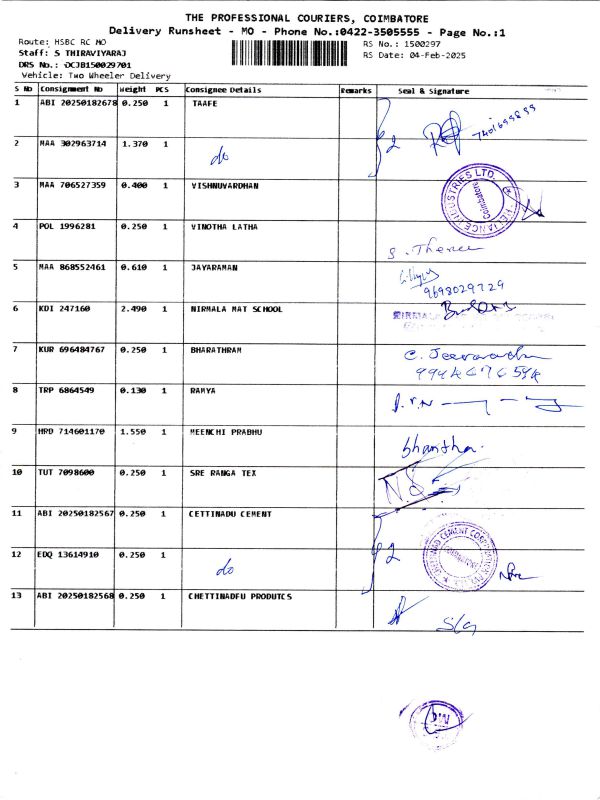 THE PROFESSIONAL COURIERS, COIMBATORE
Delivery Runsheet - MO - Phone No.:0422-3505555 - Page No.:1
Route: HSBC RC MO RS No.: 1500297
Staff: S THIRAVIYARAJ RS Date: 04-Feb-2025
DRS No.: DCJB150029701
Vehicle: Two Wheeler Delivery
S No Consignment No Weight PCS Consignee Details Remarks Seal & Signature
1 ABI 20250182678 0.250 1 TAAFE
2 MAA 302963714 1.370 1 do 2
3 MAA 706527359 0.400 1 VISHNUVARDHAN
4 POL 1996281 0.250 1 VINOTHA LATHA
5 MAA 868552461 0.610 1 JAYARAMAN 9698029729
6 KDI 247160 2.490 1 NIRMALA MAT SCHOOL
7 KUR 696484767 0.250 1 BHARATHRAM
8 TRP 6864549 0.130 1 RAMYA
9 HRD 714601170 1.550 1 MEENCHI PRABHU
10 TUT 7098600 0.250 1 SRE RANGA TEX
11 ABI 20250182567 0.250 1 CETTINADU CEMENT
12 EDQ 13614910 0.250 1 do 2
13 ABI 20250182568 0.250 1 CHETTINADFU PRODUTCS